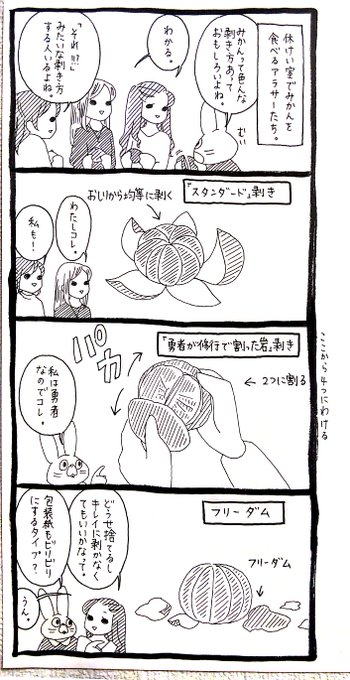 休けい室でみかんを
食べるアラサーたち。
みかんって色んな
剥き方あって
おもしろいよね。
むい
わかる。
「それ!?」
みたいな剥き方
する人いるよね。
「スタンダード」剥き
おしりから均等に剥く
わたしコレ。
私も!
「勇者が修行で割った岩」剥き
パカッ
← 2つに割る
ここから4つにわける
私は勇者
なのでコレ。
フリーダム
フリーダム
どうせ捨てるし
キレイに剥かなく
てもいいかなって。
包装紙もビリビリ
にするタイプ?
うん。